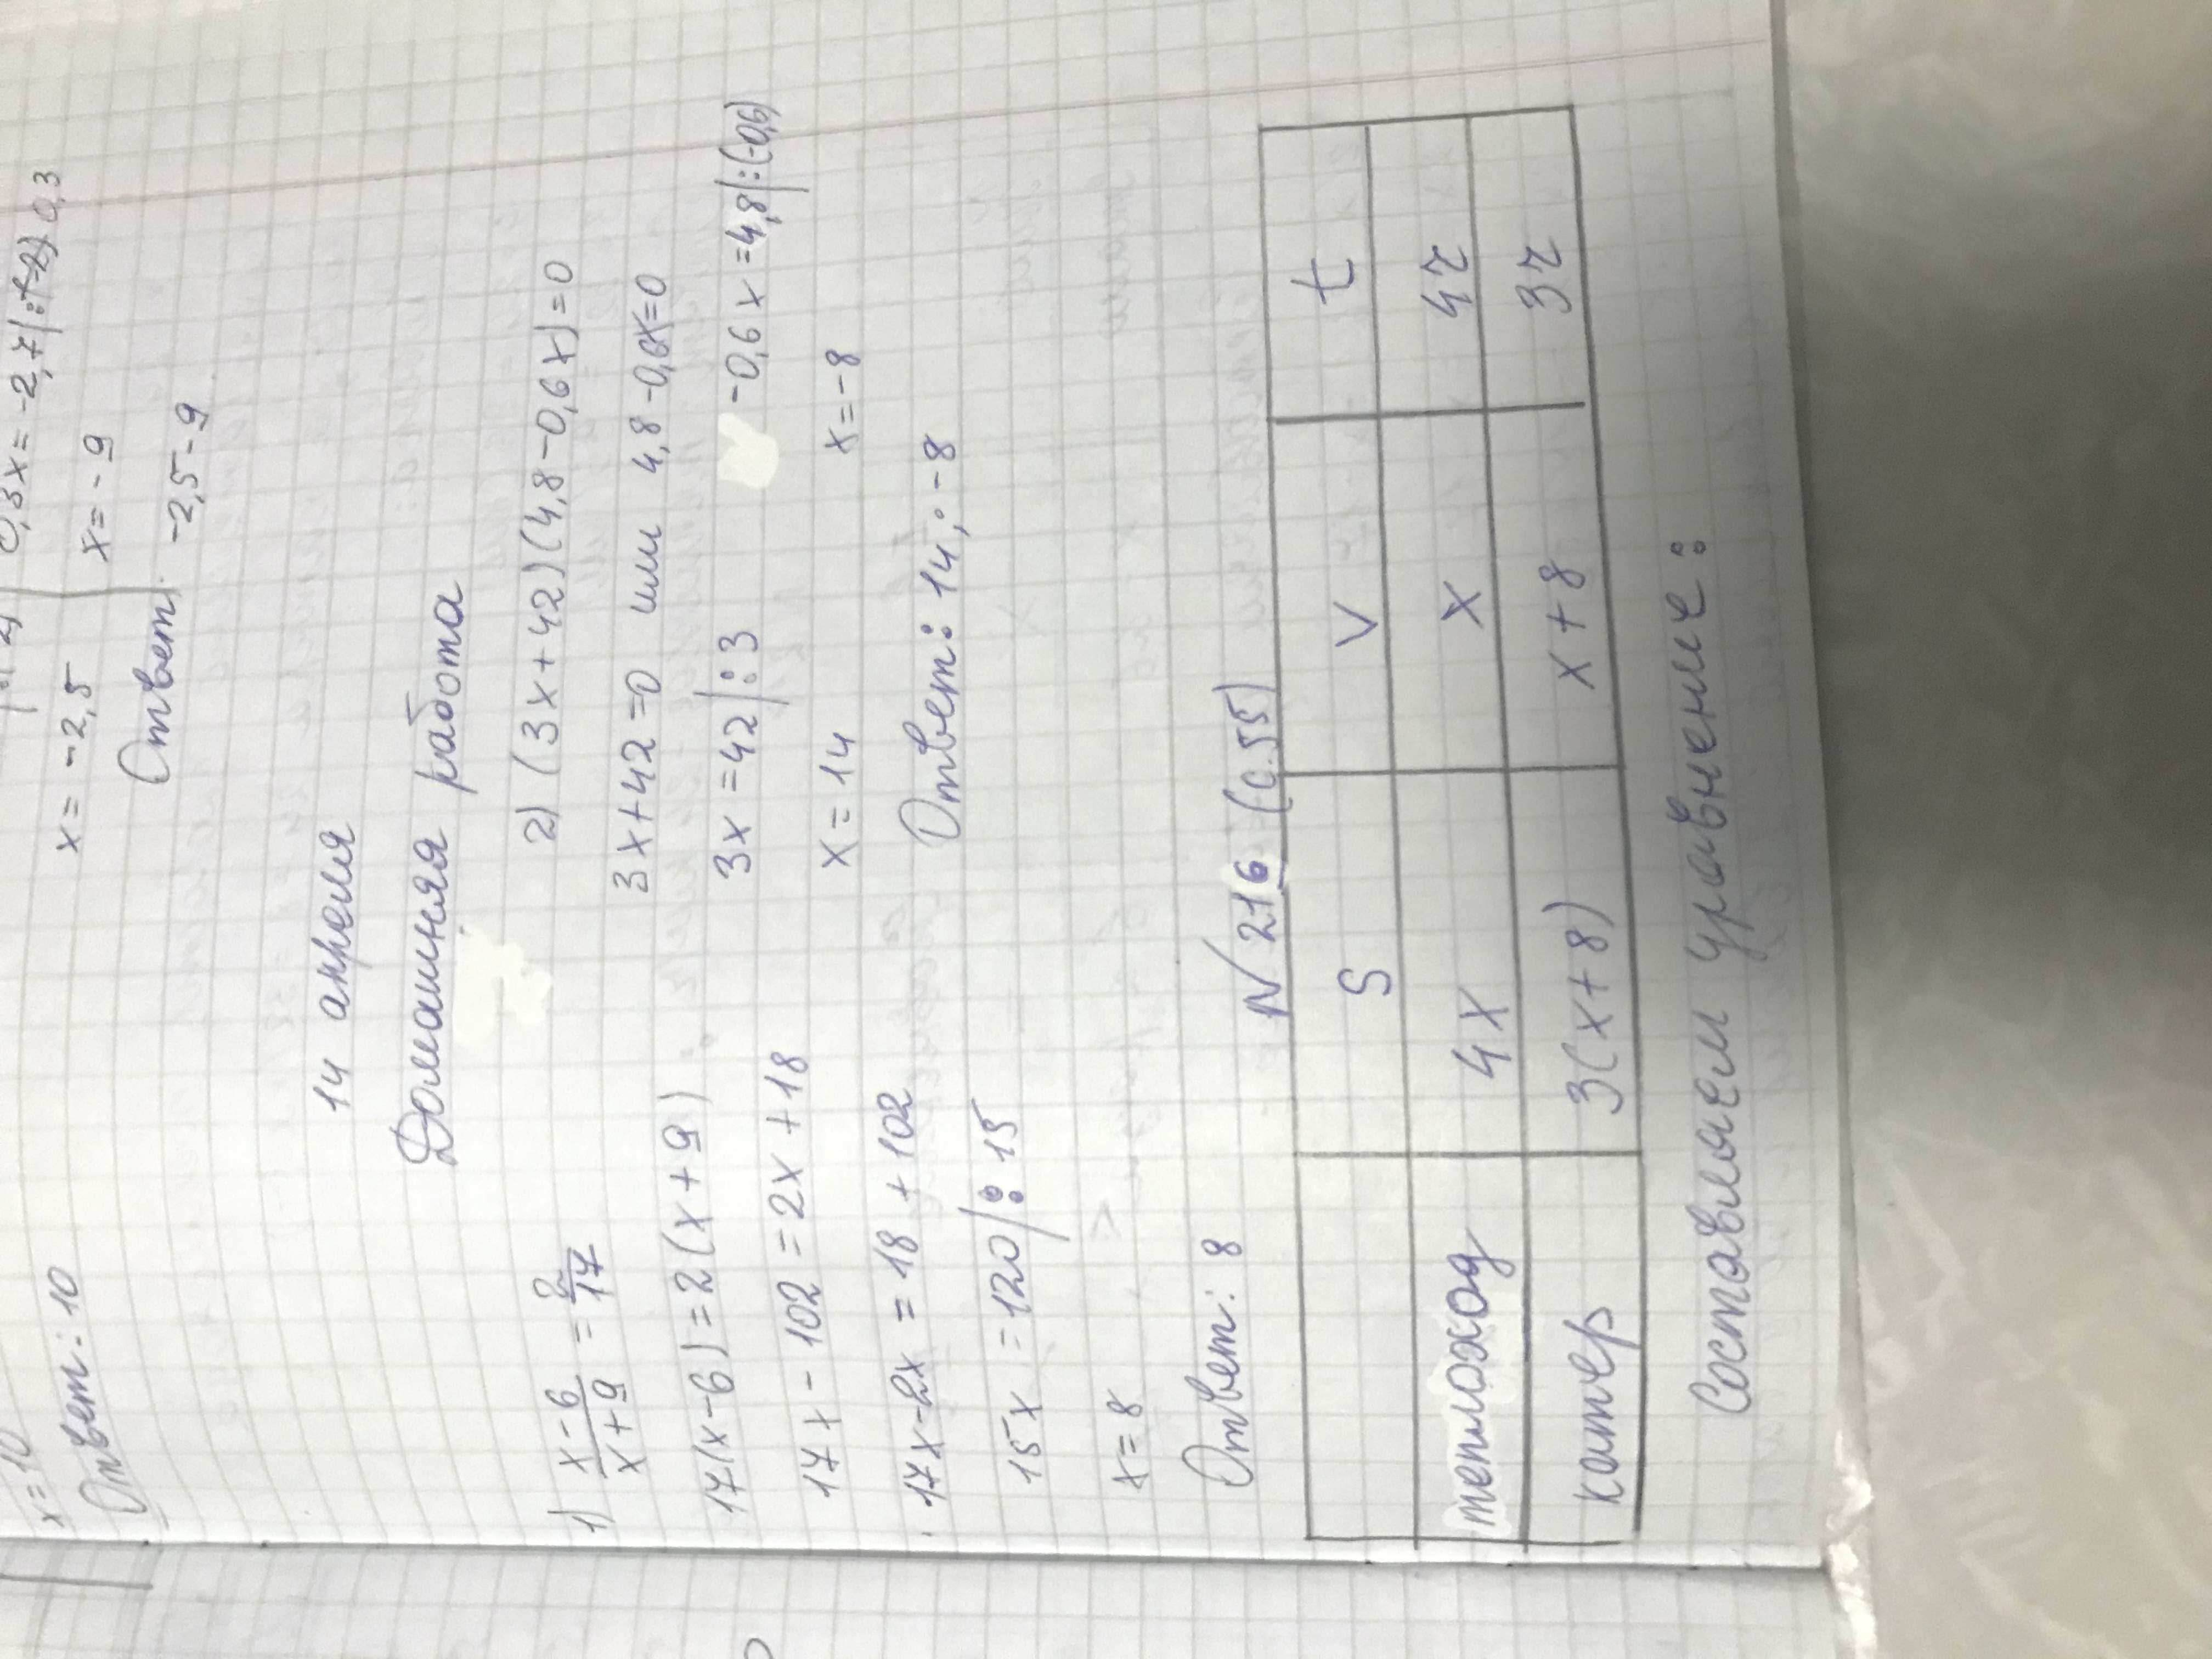 x=10
Ответ: 10
0,3x=-2,7|:0,3
x=-2,5 x=-9
Ответ: -2,5-9
14 апреля
Домашняя работа
1) x-6/x+9 = 2/17
17(x-6)=2(x+9)
17x-102=2x+18
17x-2x=18+102
15x=120|:15
x=8
Ответ: 8
2) (3x+42)(4,8-0,6x)=0
3x+42=0 или 4,8-0,6x=0
3x=42|:3 -0,6x=4,8|:(-0,6)
x=14 x=-8
Ответ: 14; -8
N216 (с.55)
S V t
теплоход 4x x 4ч
катер 3(x+8) x+8 3ч
Составляем уравнение: